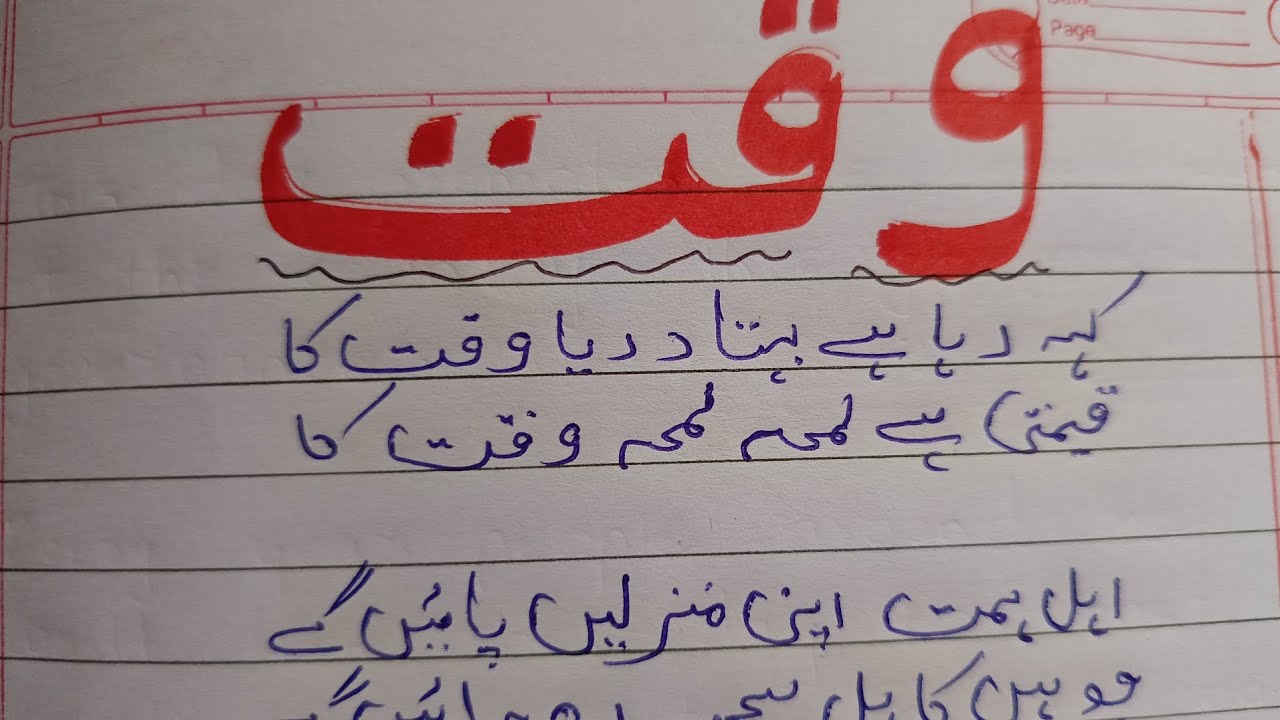 Page
وقت
کہہ رہا ہے بہتا دریا وقت کا
قیمتی ہے لمحہ لمحہ وقت کا
اہل ہمت اپنی منزلیں پائیں گے
جو ہیں کاہل